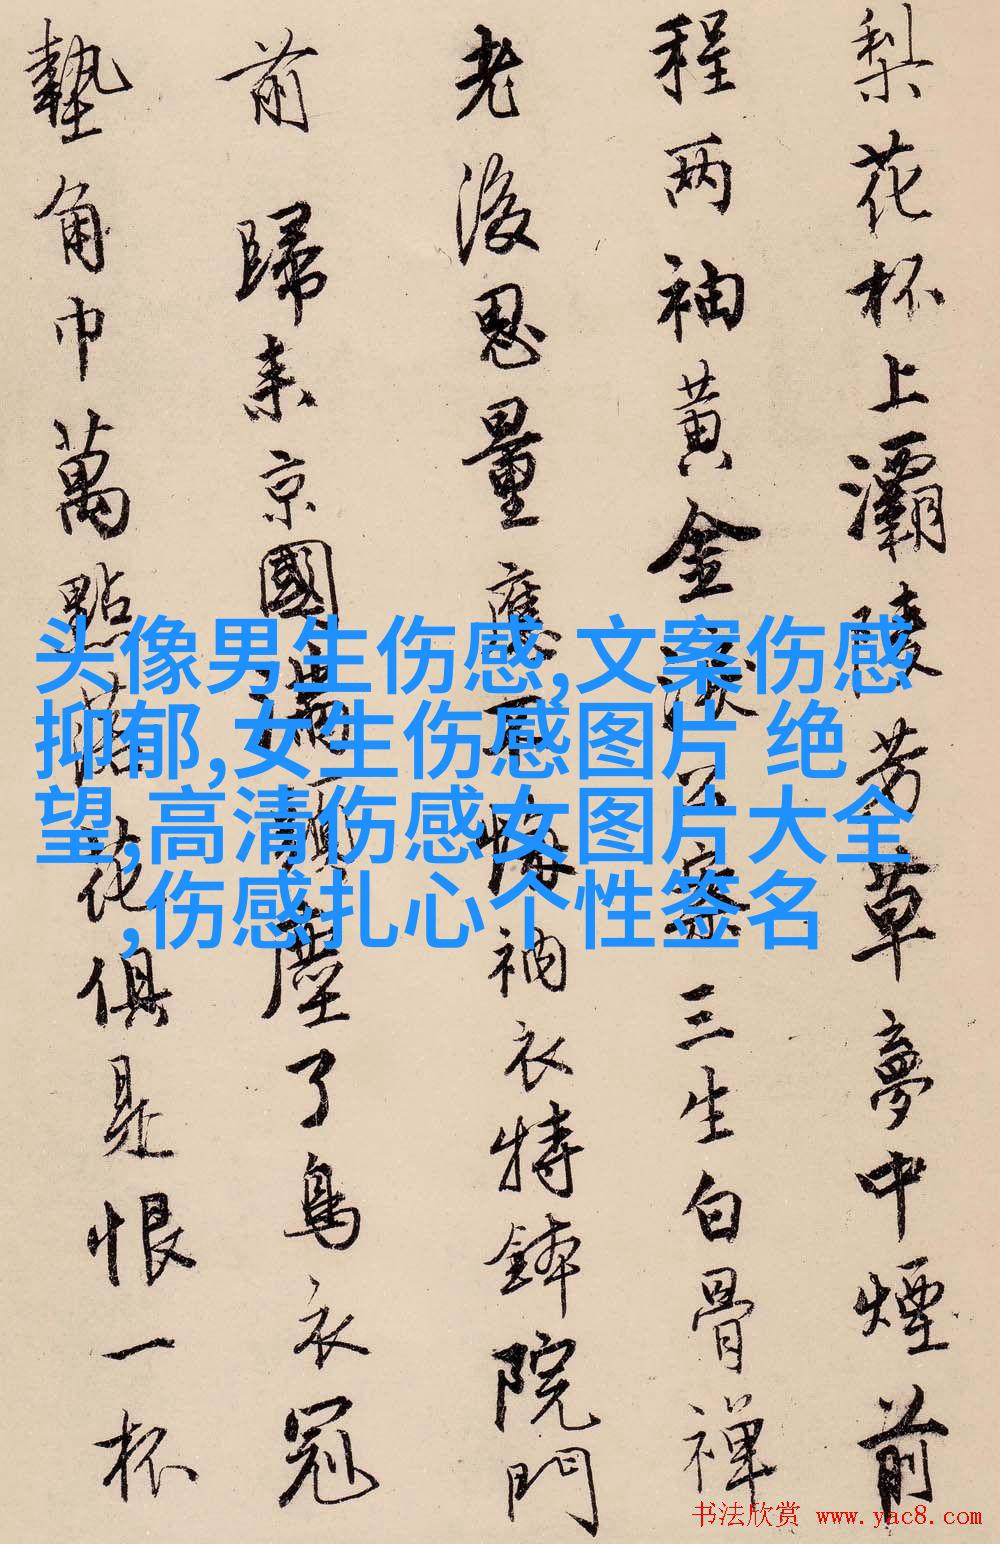 梨花杯上灞陵芳草夢中煙前
程两袖黄金淚公案三生白骨禅
老後思量應不悔衲衣持鉢院門
前歸来京國塵了鳥衣冠
墊角巾萬點落花俱是恨一杯
头像男生伤感,文案伤感
抑郁,女生伤感图片 绝
望,高清伤感女图片大全
,伤感扎心个性签名
书法欣赏 www.yac8.com